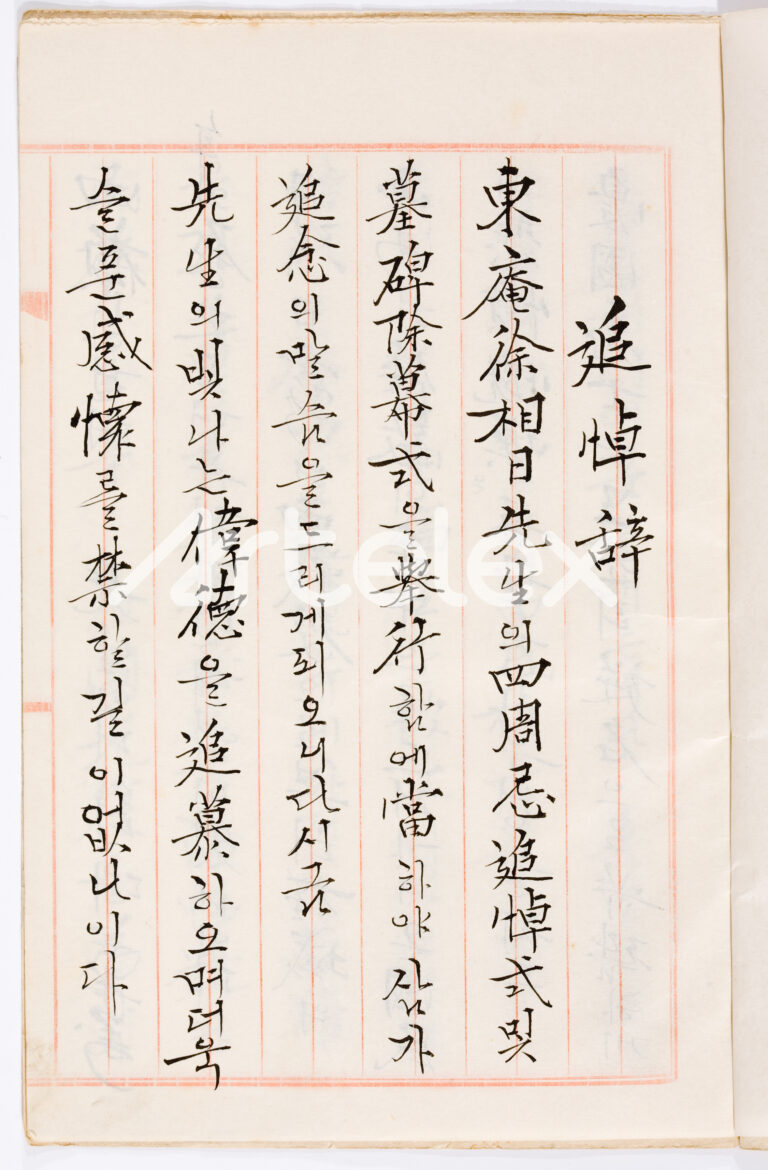 追悼辞
東庵徐相日先生의四周忌追悼式및
墓碑除幕式을擧行함에當하야삼가
追念의말슴을드리게되오니다시금
先生의빗나는偉德을追慕하오며더욱
슬푼感懷를禁할길이없나이다
Artelex